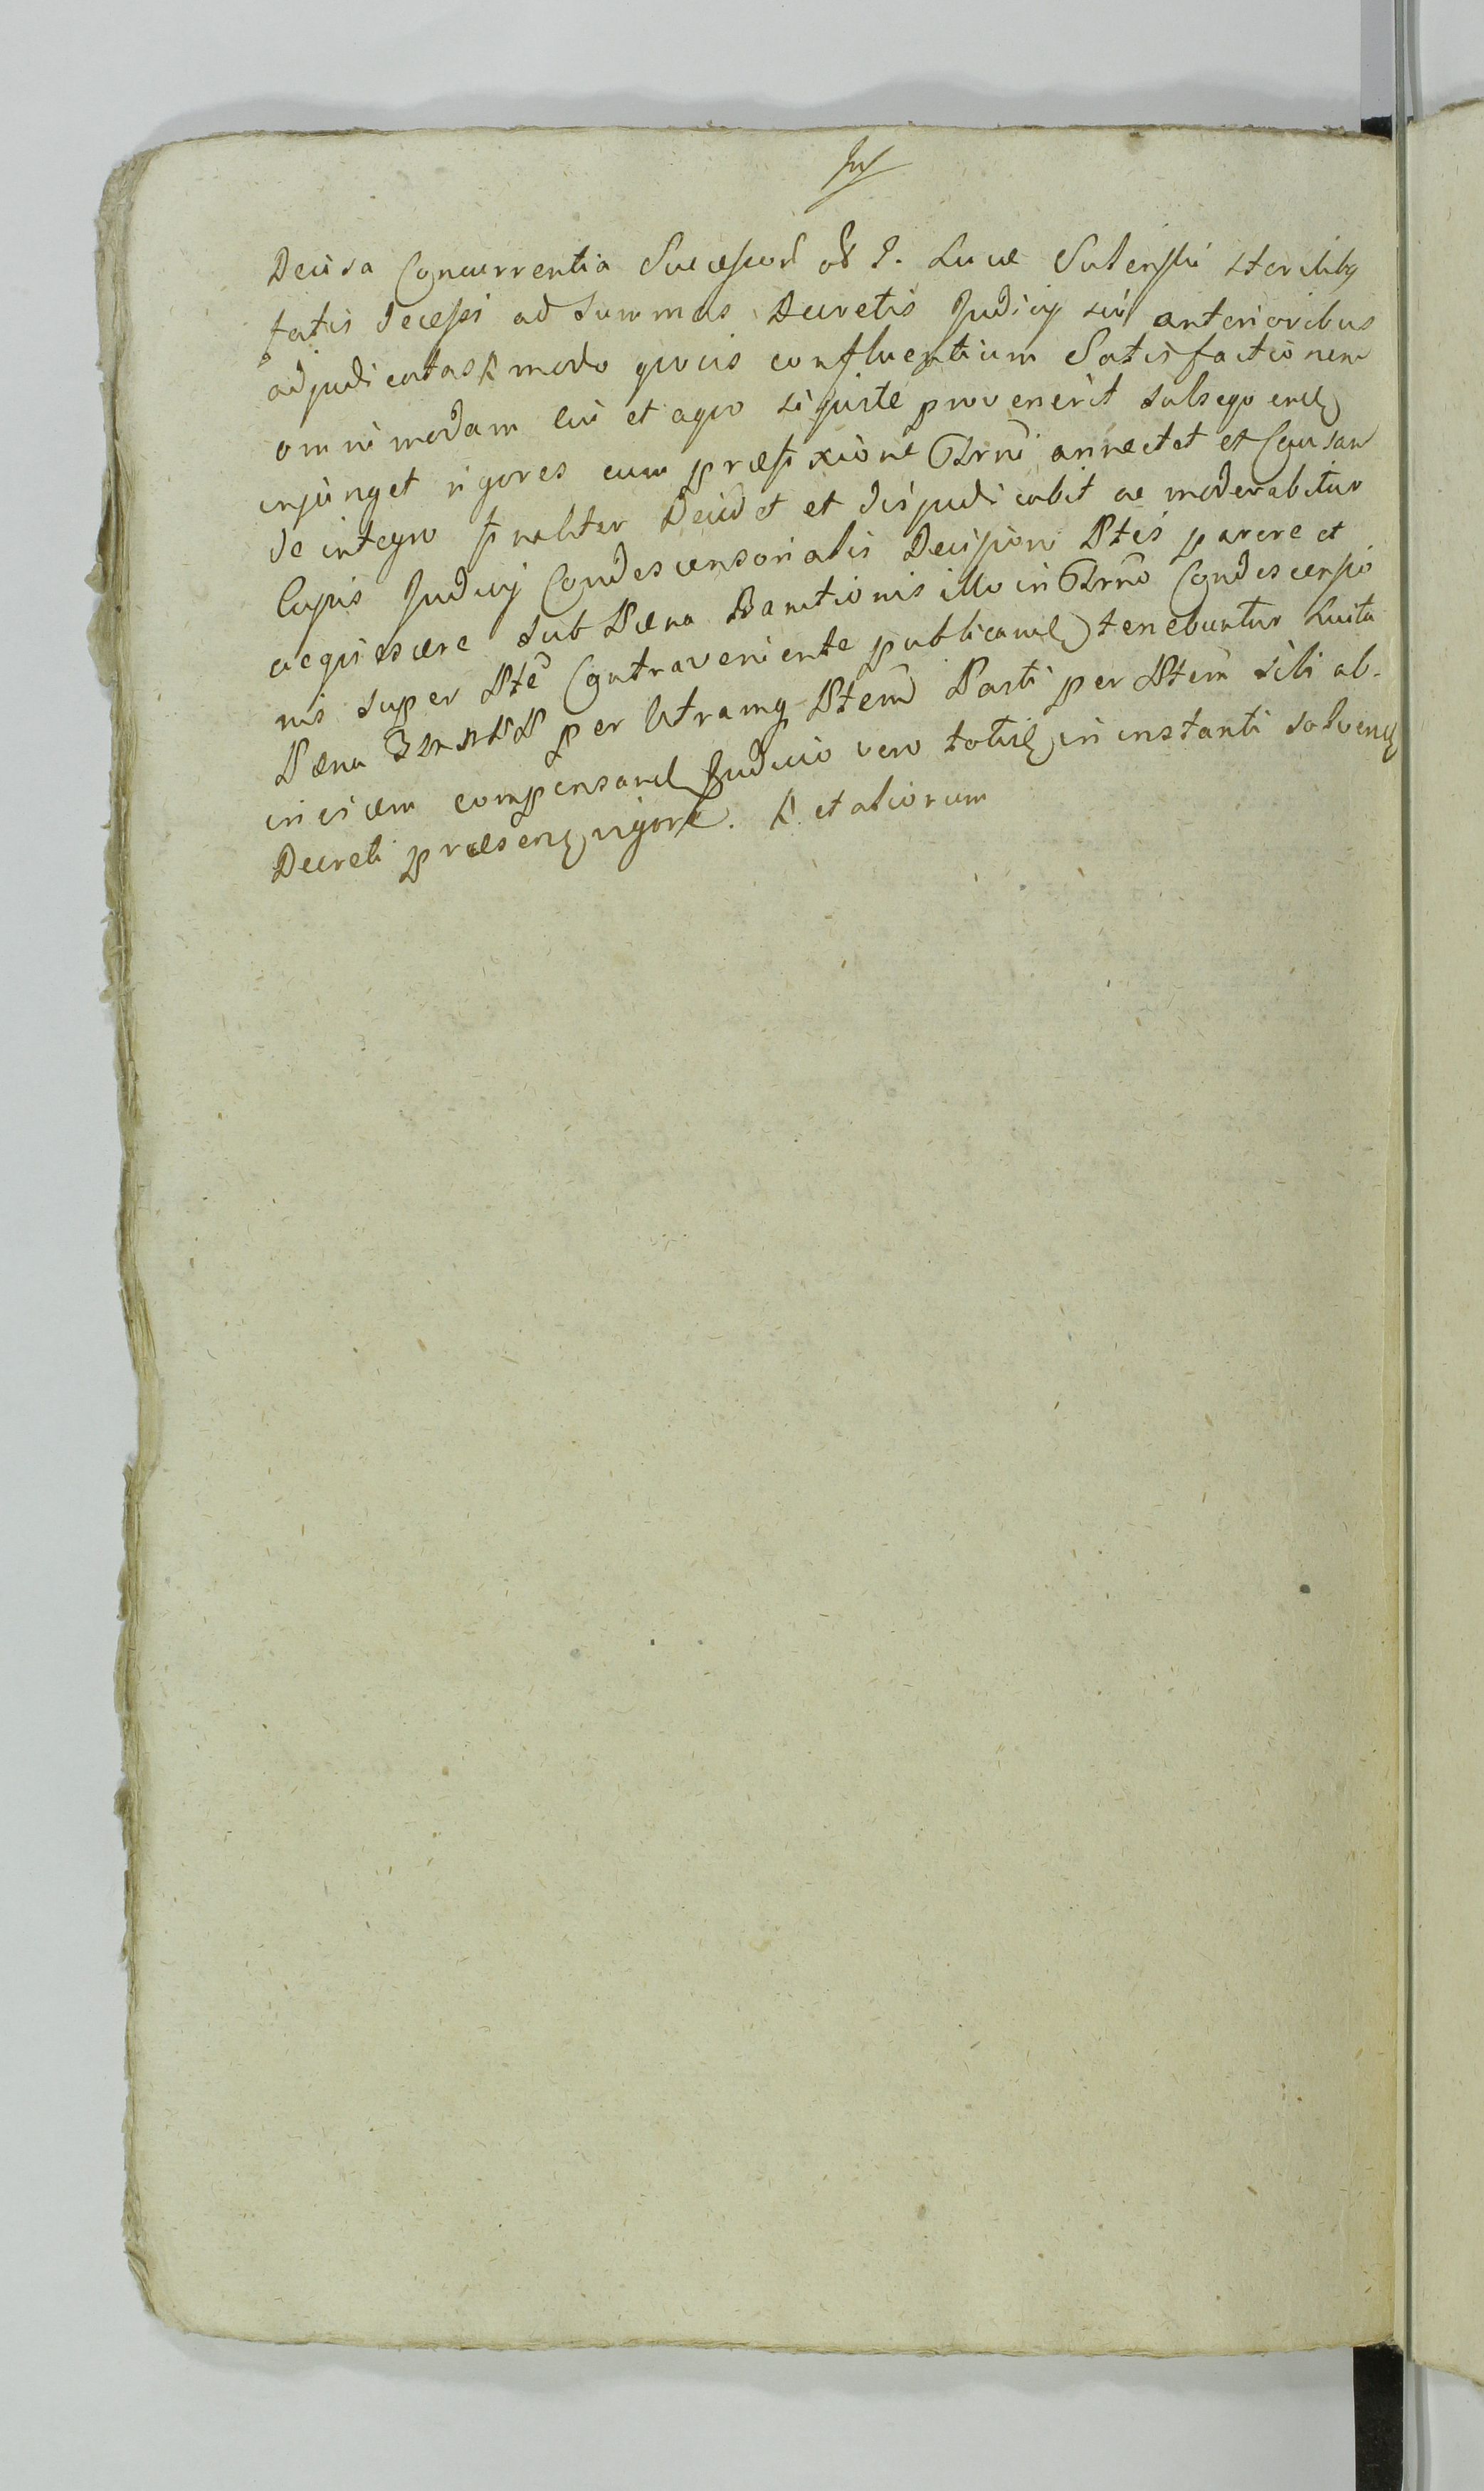 Decisa Concurrentia Successor. ol. G. Lucæ Sulenski sterilibq
fatis decessi ad Summas Decretis Judicij sui anterioribus
adjudicatas & modo quovis confluentium Satisfactionem
omnimodam ei et a quo si juste provenerit subsequend
injunget rigores cum præfixione Trni annectet et Causam
de integro finaliter Decidet et dijudicabit ac moderabitur
Cujus Judicij Condescensorialis Decisioni Ptes parere et
acquiescere sub Pæna Bannitionis illo in Trno Condescensio
nis super Pte Contraveniente publicand tenebuntur Luita
Pæna per Utramq Ptem Parti per Ptem sibi ab-
invicem compensand Judicio vero toties in instanti solvend
Decreti præsen vigore. & et aliorum